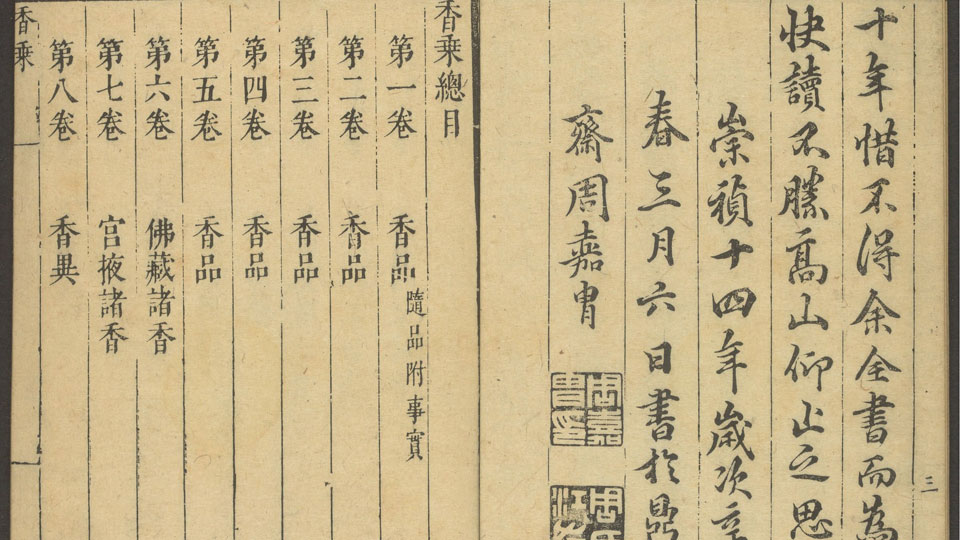 三
十年惜不得余全書而為
快讀不勝髙山仰止之思
崇禎十四年歲次辛
春三月六日書於鼎
齋周嘉胄
周嘉胄印
香乘總目
第一卷 香品 隨品附事實
第二卷 香品
第三卷 香品
第四卷 香品
第五卷 香品
第六卷 佛藏諸香
第七卷 宮掖諸香
第八卷 香異
香乘